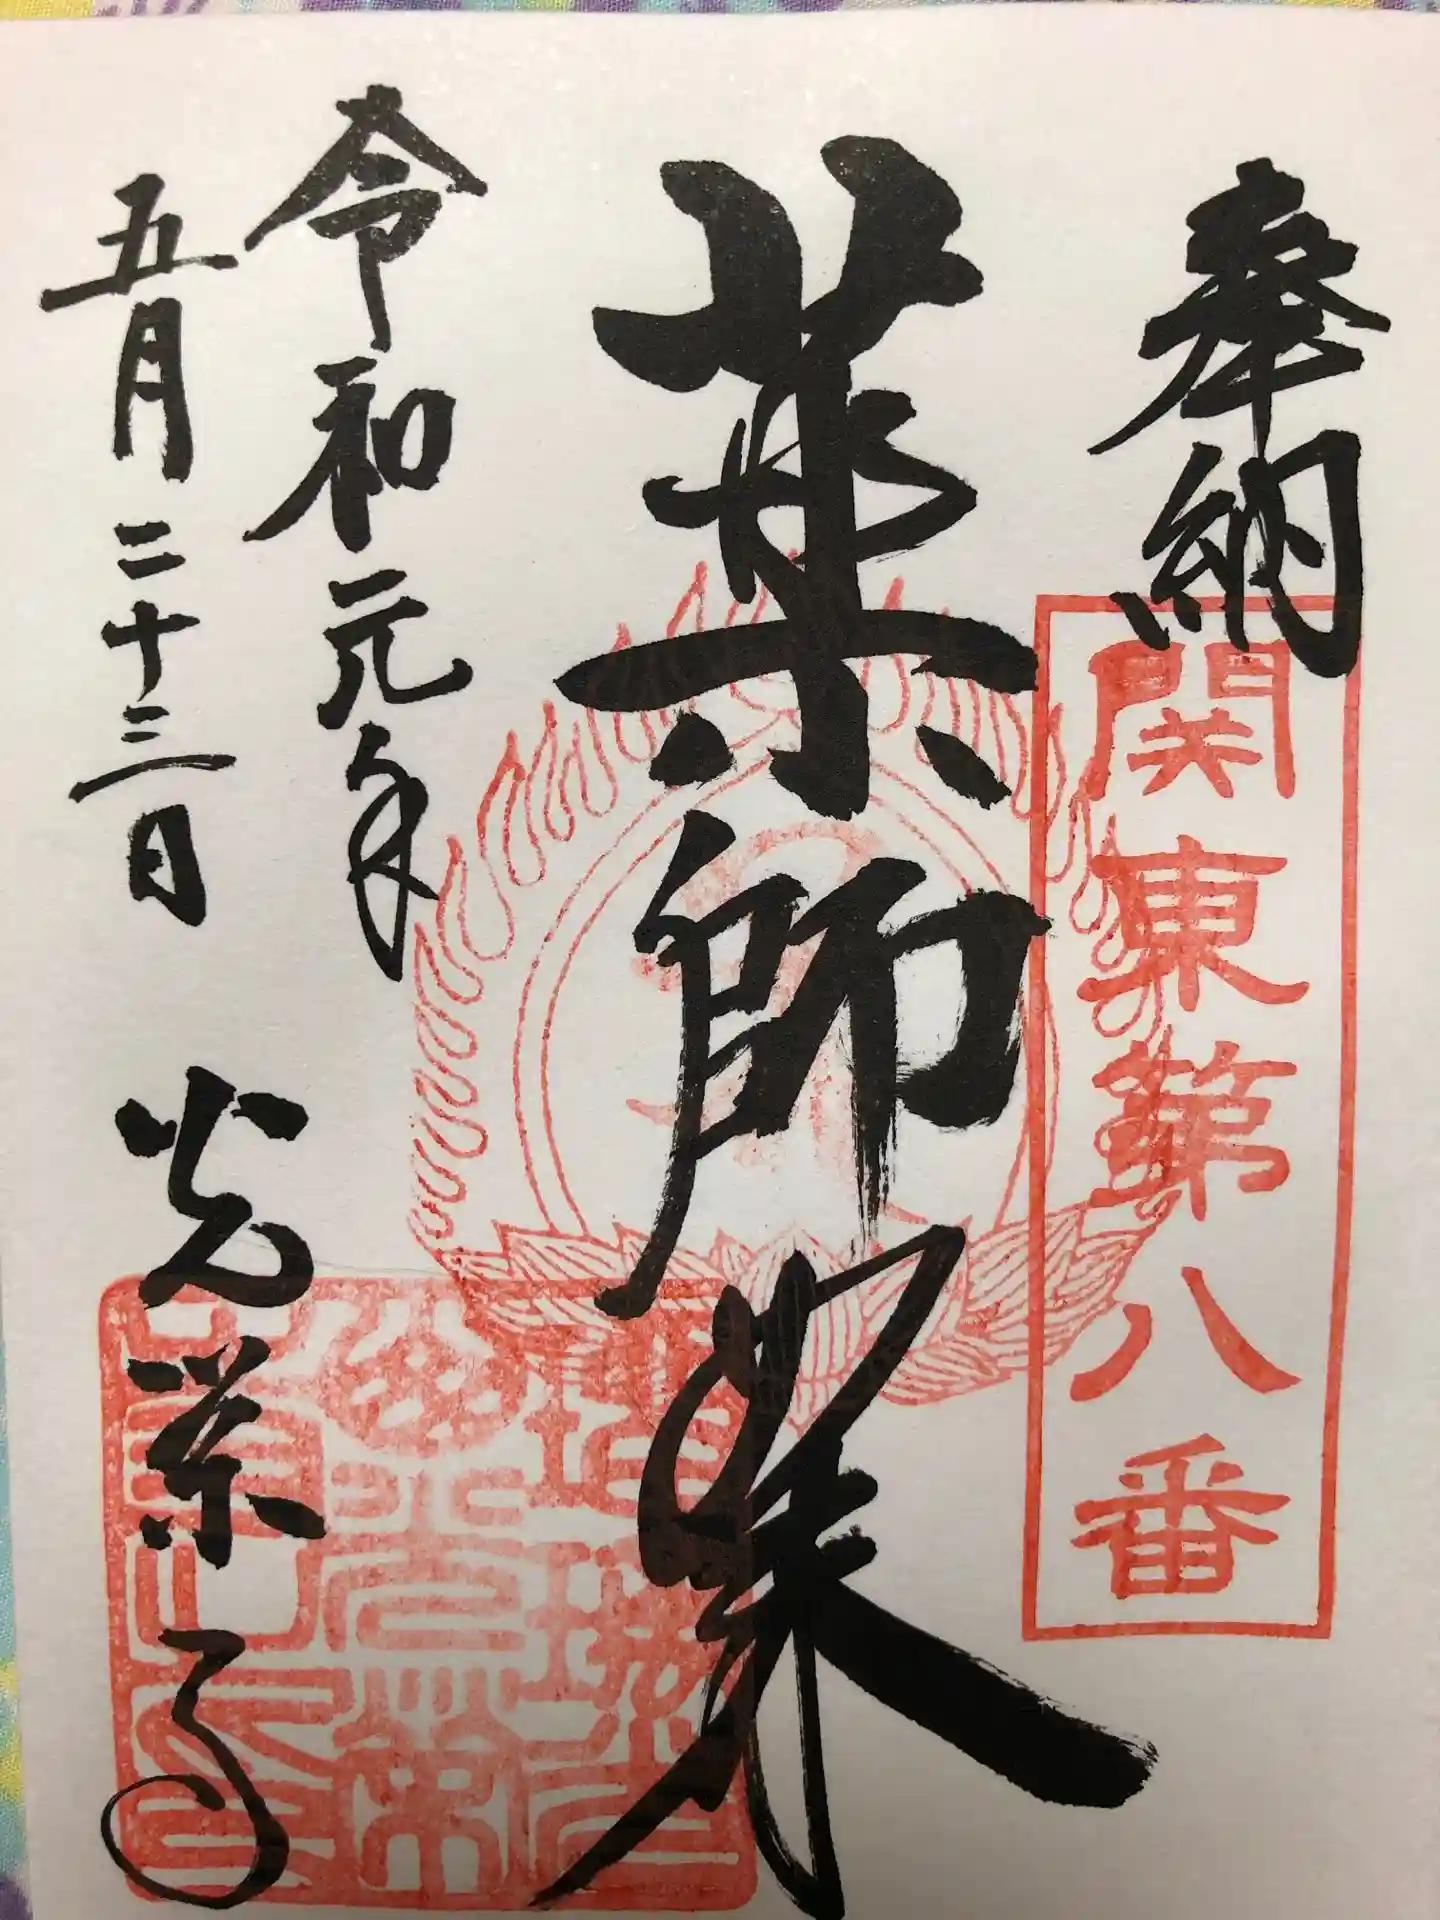 奉納
関東第八番
薬師
令和元年
五月二十三日
光栄寺